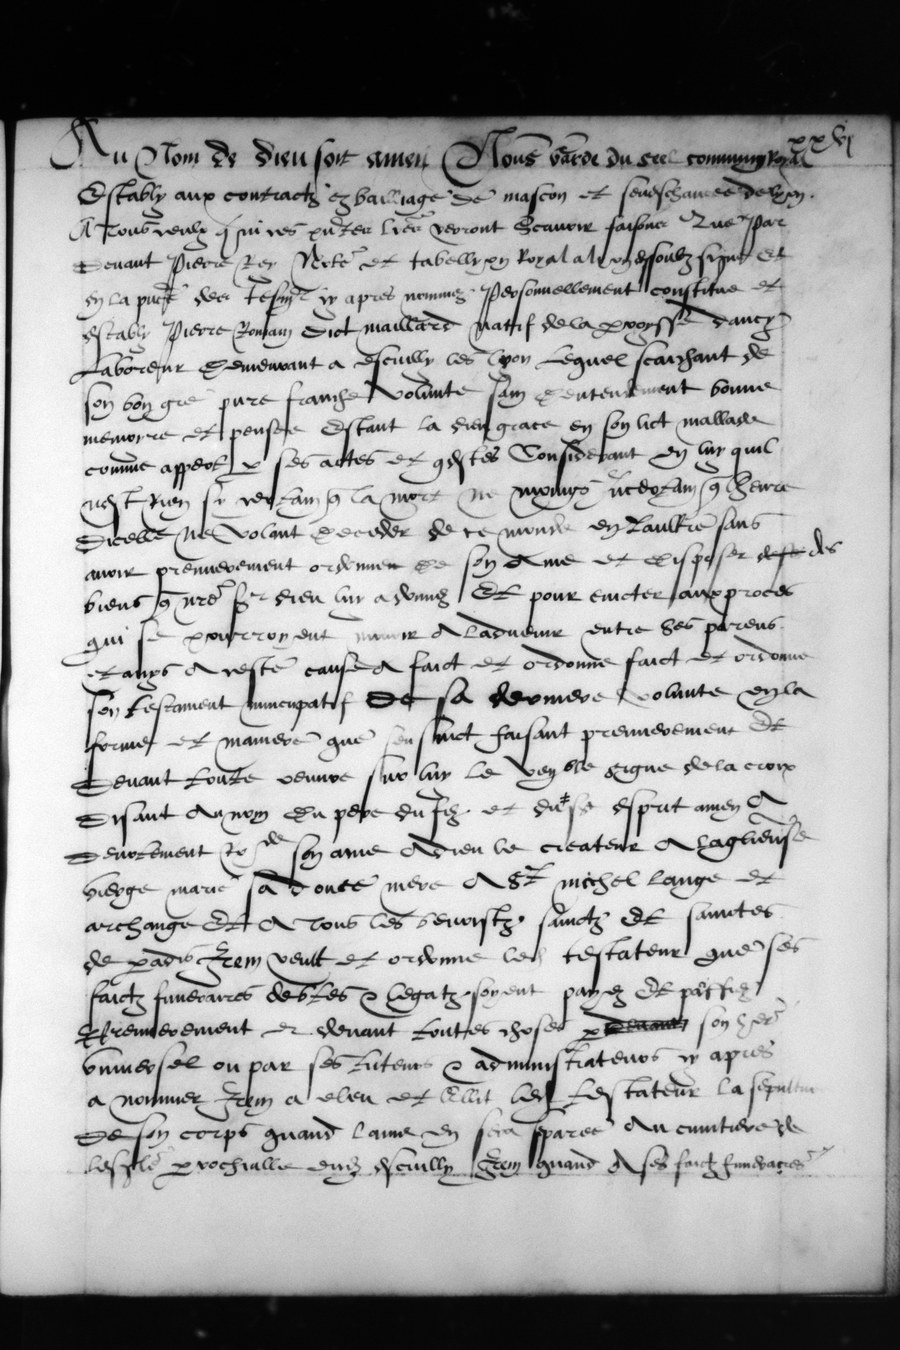 xxvj
Au Nom de dieu soit amen Nous garde du scel commung Royal
Estably aux contractz ez bailliage de mascon et seneschaucee de lyon
A tous ceulx qui ces pntes lres verront Scavoir faisons Que Par
Devant Pierre Rey Notre et tabellyon Royal a lyon dessoubz signe Et
En la pnce des tesmgs cy apres nommez Personnellement constitue et
estably Pierre Romain dict maillard natif de la parroysse dancy
Laboreur demeurant a escully les lyon Lequel scaichant de
son bon gre pure franche volunte sain dentendement bonne
memoyre et pensee Estant la dieu grace en son lict mallade
comme appert p ses actes et gestes Considerant en luy quil
nest Rien sy certain q la mort ne moings incertain q lheure
Dicelle Ne Volant deceder de ce monde en laultre sans
avoir premierement ordonne de son ame et disposer des
biens q nre sr dieu luy a donnez Et pour eviter aux proces
qui se pourroyent mouvoir A ladvenir entre ses parens
et amys A ceste cause A faict et ordonne faict et ordonne
son testament nuncupatif Et sa derniere volunte en la
forme et maniere que sensuict faisant premierement Et
Devant toute oeuvre sur luy le ven ble signe de la croix
Disant Au nom du pere du filz et du st esprit amen A
Devotement Rde son ame A dieu le createur A la glieuse
vierge marie sa doulce mere A St michel lange et
archange Et A tous les benoistz sainctz Et sainctes
de padis Item veult et ordonne led testateur que ses
faictz funeraires debtes & legatz soyent payez Et
Premierement et devant toutes choses p son her
universel ou par ses tuteurs & administrateurs cy apres
a nommer Item a eleu et Ellit led testateur la sepultur
De son corps quand lame en sera sparee Au cimitiere de
lesglise parrochialle dud escully Item quand A ses faictz funeraires